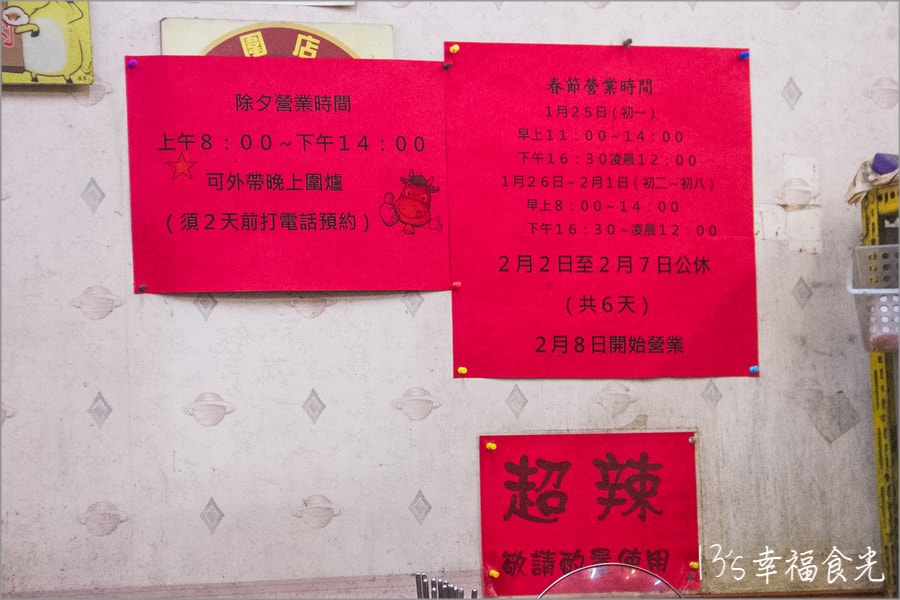 圍店
除夕營業時間
上午8：00~下午14：00
可外帶晚上圍爐
(須2天前打電話預約)
春節營業時間
1月25日(初一)
早上11：00~14：00
下午16：30凌晨12：00
1月26日~2月1日(初二~初八)
早上8：00~14：00
下午16：30~凌晨12：00
2月2日至2月7日公休
(共6天)
2月8日開始營業
超辣
敬請酌量使用
13's幸福食光